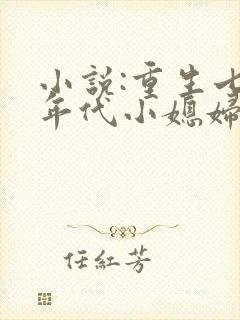 小說:重生七
年代小媳婦
任紅芳